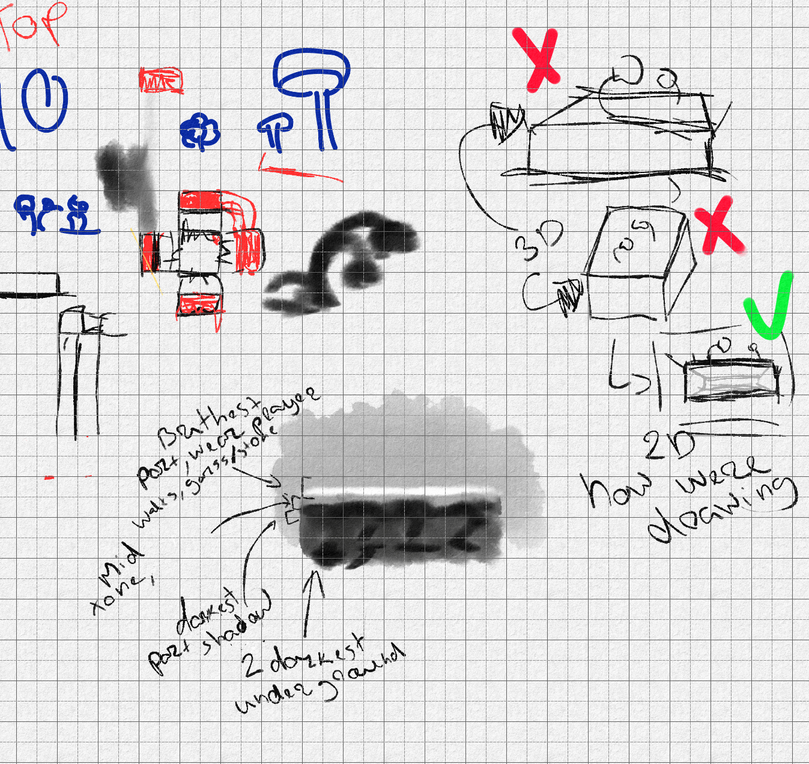 TOP
3D
2D
how were
drawing
Brathest
part, wear player
walks, grass/stone
Mid
tone,
darkest
part shadow
2 darkest
underground